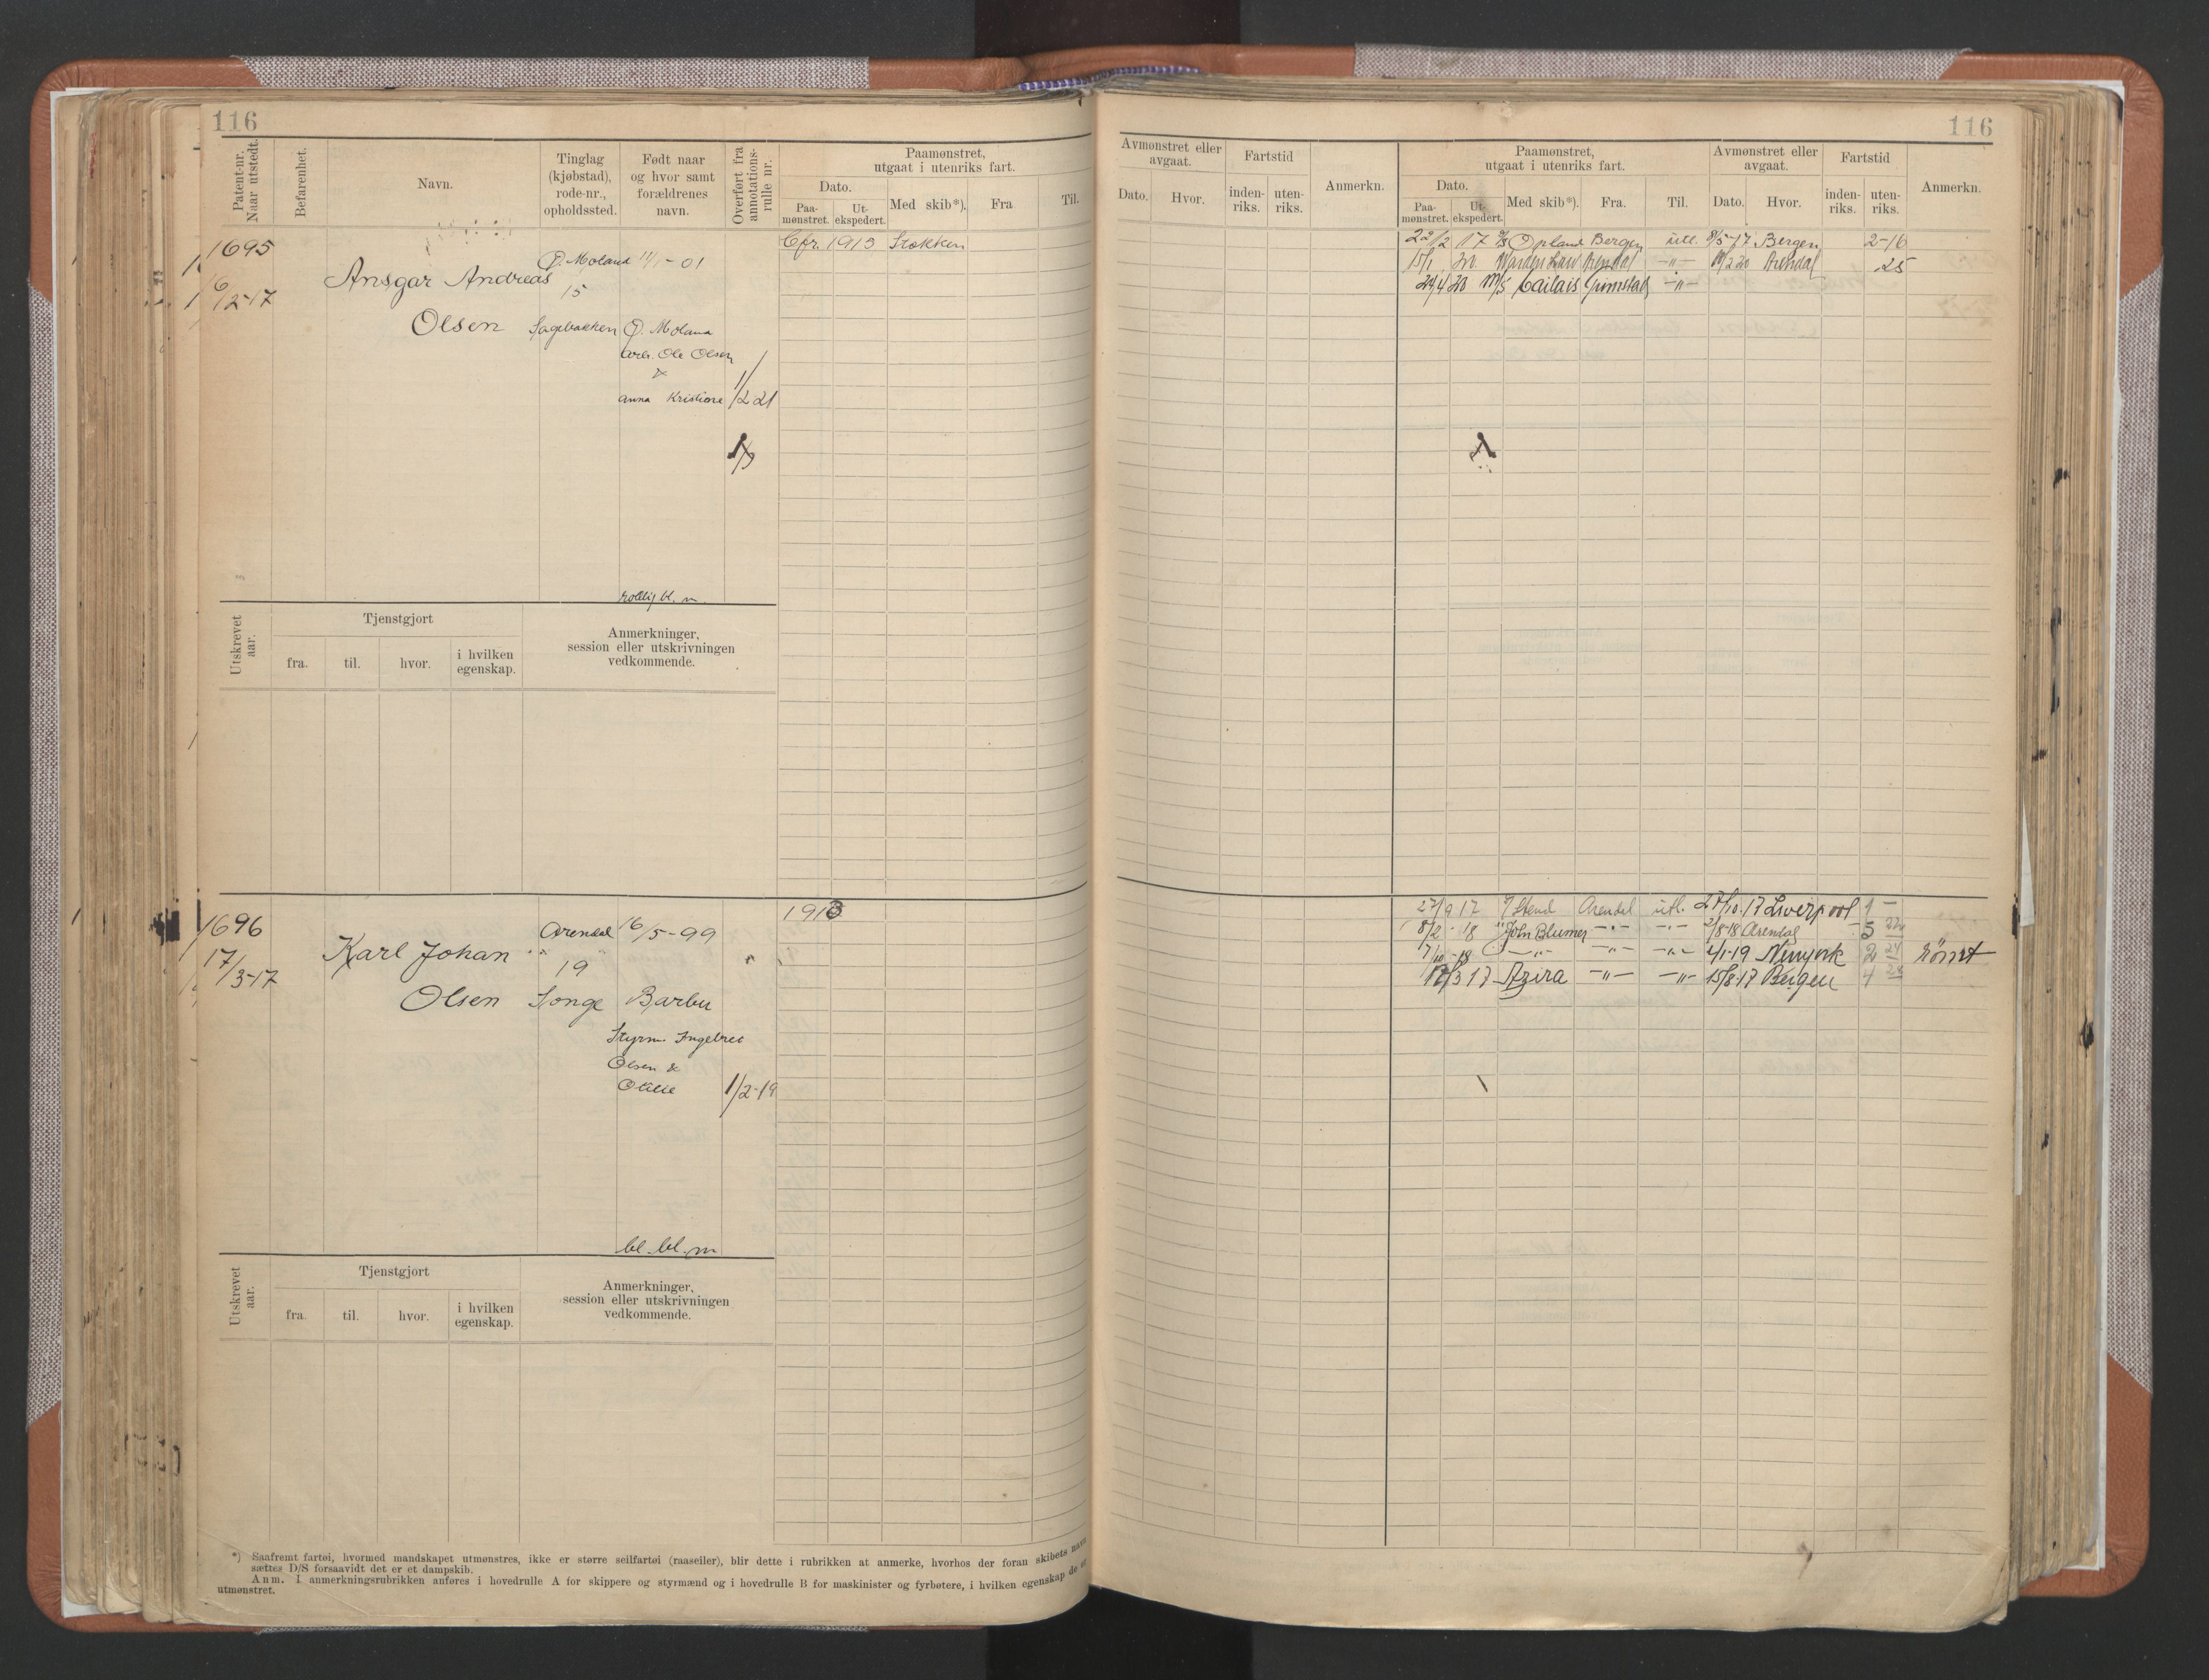 116
Patent-nr. Naar utstedt.
Befarenhet.
Navn.
Tinglag (kjøbstad), rode-nr., opholdssted.
Født naar og hvor samt forældrenes navn.
Overført fra annotations-rulle nr.
Paamønstret, utgaat i utenriks fart.
Dato.
Paa-mønstret.
Ut-ekspedert.
Med skib*).
Fra
Til.
1695
6/2-17
Ansgar Andreas
Olsen
Ø. Moland
15
Sagebakken
11/1-01
Ø. Moland
arb. Ole Olsen
&
Anna Kristine
1/2 21
Cfr. 1913 Stokken
bl. m.
Utskrevet aar.
Tjenstgjort
fra.
til.
hvor.
i hvilken egenskap.
Anmerkninger, session eller utskrivningen vedkommende.
1696
17/3-17
Karl Johan
Olsen
Arendal
19
Songe
16/5-99
Barbu
Styrm. Ingebret
Olsen &
Otilie
1/2-19
1913
bl. bl. m
Utskrevet aar.
Tjenstgjort
fra.
til.
hvor.
i hvilken egenskap.
Anmerkninger, session eller utskrivningen vedkommende.
*) Saafremt fartøi, hvormed mandskapet utmønstres, ikke er større seilfartøi (raaseiler), blir dette i rubrikken at anmerke, hvorhos der foran skibets navn
sættes D/S forsaavidt det er et dampskib.
Anm. I anmerkningsrubrikken anføres i hovedrulle A for skippere og styrmænd og i hovedrulle B for maskinister og fyrbøtere, i hvilken egenskap de er
utmønstret.
116
Avmønstret eller avgaat.
Dato.
Hvor.
Fartstid
inden-riks.
uten-riks.
Anmerkn.
Paamønstret, utgaat i utenriks fart.
Dato.
Paa-mønstret.
Ut-ekspedert.
Med skib*).
Fra.
Til.
Avmønstret eller avgaat.
Dato.
Hvor.
Fartstid
inden-riks.
uten-riks.
Anmerkn.
22/2 17 D/S Opland Bergen utl. 8/5-17 Bergen 2-16
15/1 20 Arendal -"- Arendal 25
24/4 20 M/S Calais Grimstad -"-
27/9 17 Stend Arendal utl. 27/10.17 Liverpool 1 -
8/2 - 18 John Blumer -"- -"- 2/8-18 Arendal 5
7/10 -18 -"- -"- -"- 4/1-19 Newyork 2 rømt
17/3 17 Azira -"- -"- 15/8-17 Bergen 4